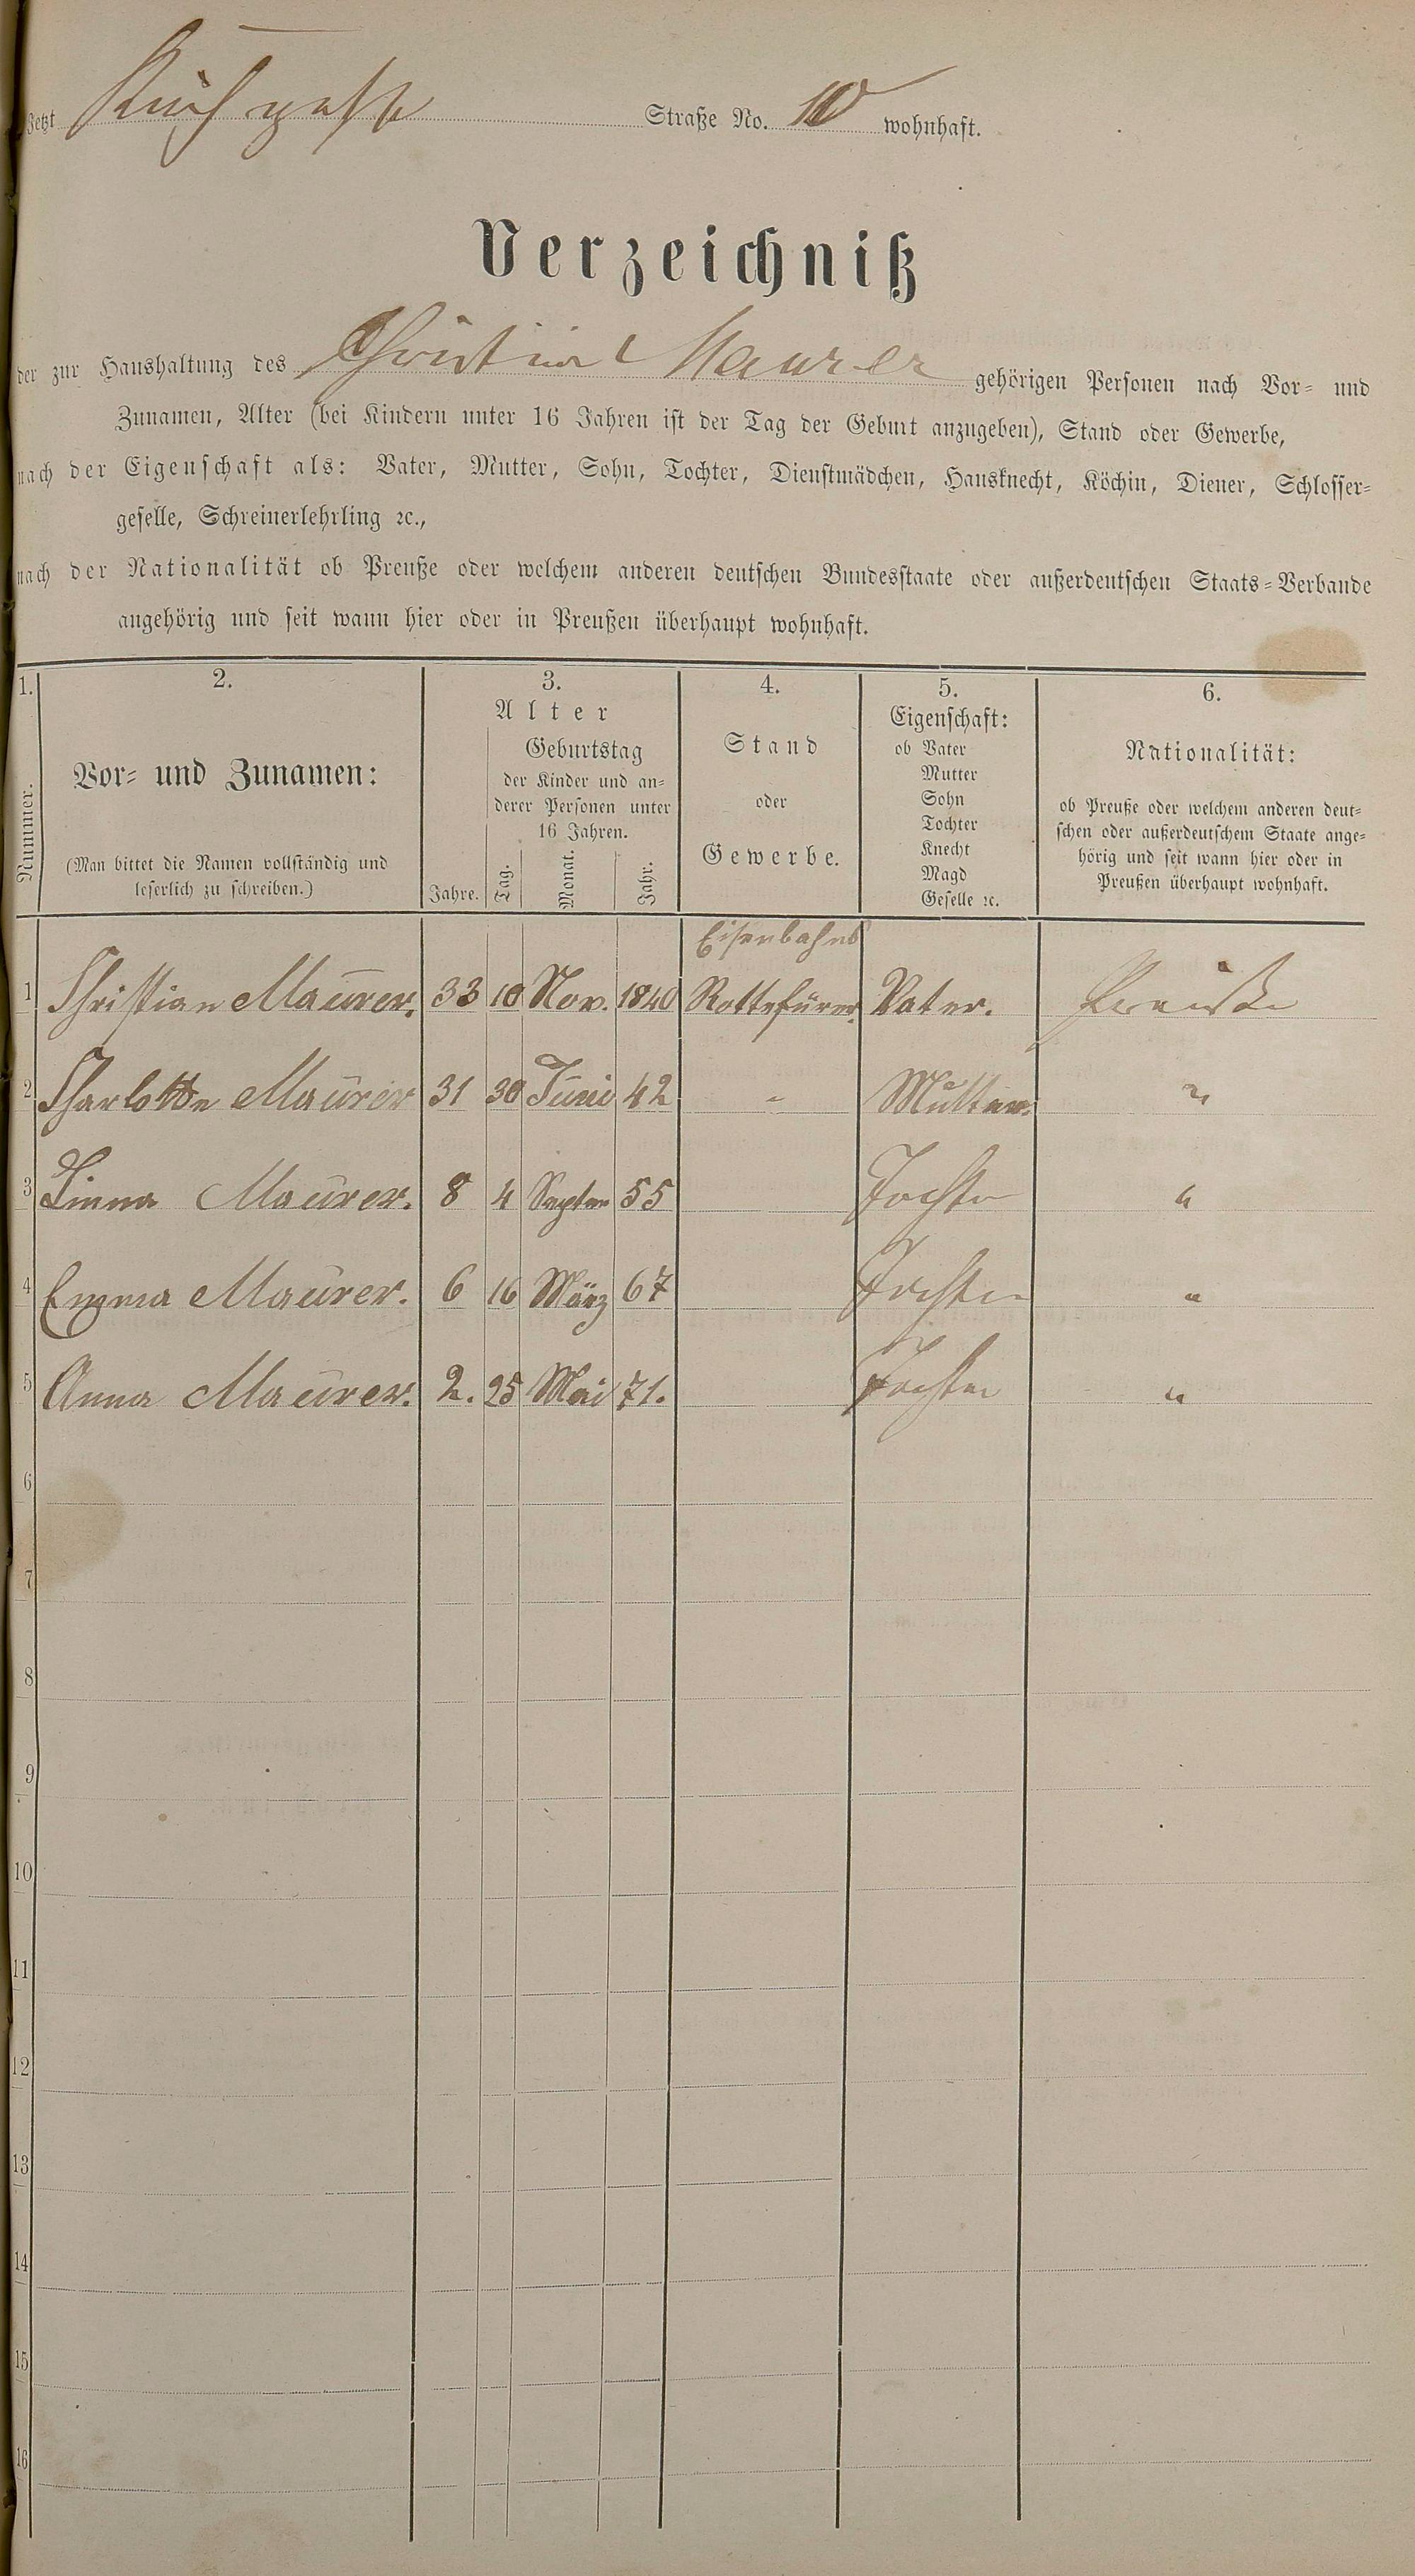 Jetzt Kirchgasse Straße No. 10 wohnhaft.
Verzeichniß
der zur Haushaltung des Christian Maurer gehörigen Personen nach Vor- und
Zunamen, Alter (bei Kindern unter 16 Jahren ist der Tag der Geburt anzugeben), Stand oder Gewerbe,
nach der Eigenschaft als: Vater, Mutter, Sohn, Tochter, Dienstmädchen, Hausknecht, Köchin, Diener, Schlosser-
geselle, Schreinerlehrling ꝛc.,
nach der Nationalität ob Preuße oder welchem anderen deutschen Bundesstaate oder außerdeutschen Staats-Verbande
angehörig und seit wann hier oder in Preußen überhaupt wohnhaft.
1. 2. 3. 4. 5. 6.
Nummer.
Vor- und Zunamen:
(Man bittet die Namen vollständig und
leserlich zu schreiben.)
Alter
Jahre.
Geburtstag
der Kinder und an-
derer Personen unter
16 Jahren.
Tag. Monat. Jahr.
Stand
oder
Gewerbe.
Eigenschaft:
ob Vater
Mutter
Sohn
Tochter
Knecht
Magd
Geselle ꝛc.
Nationalität:
ob Preuße oder welchem anderen deut-
schen oder außerdeutschem Staate ange-
hörig und seit wann hier oder in
Preußen überhaupt wohnhaft.
Eisenbahnb
1 Christian Maurer. 33 10 Nov. 1840 Rottefürer. Vater. Preuße
2 Charlotte Maurer 31 30 Juni 42 - Mutter. "
3 Linna Maurer. 8 4 Septem 55 Tochter "
4 Emma Maurer. 6 16 März 67 Tochter "
5 Anna Maurer. 2. 25 Mai 71. Tochter "
6
7
8
9
10
11
12
13
14
15
16